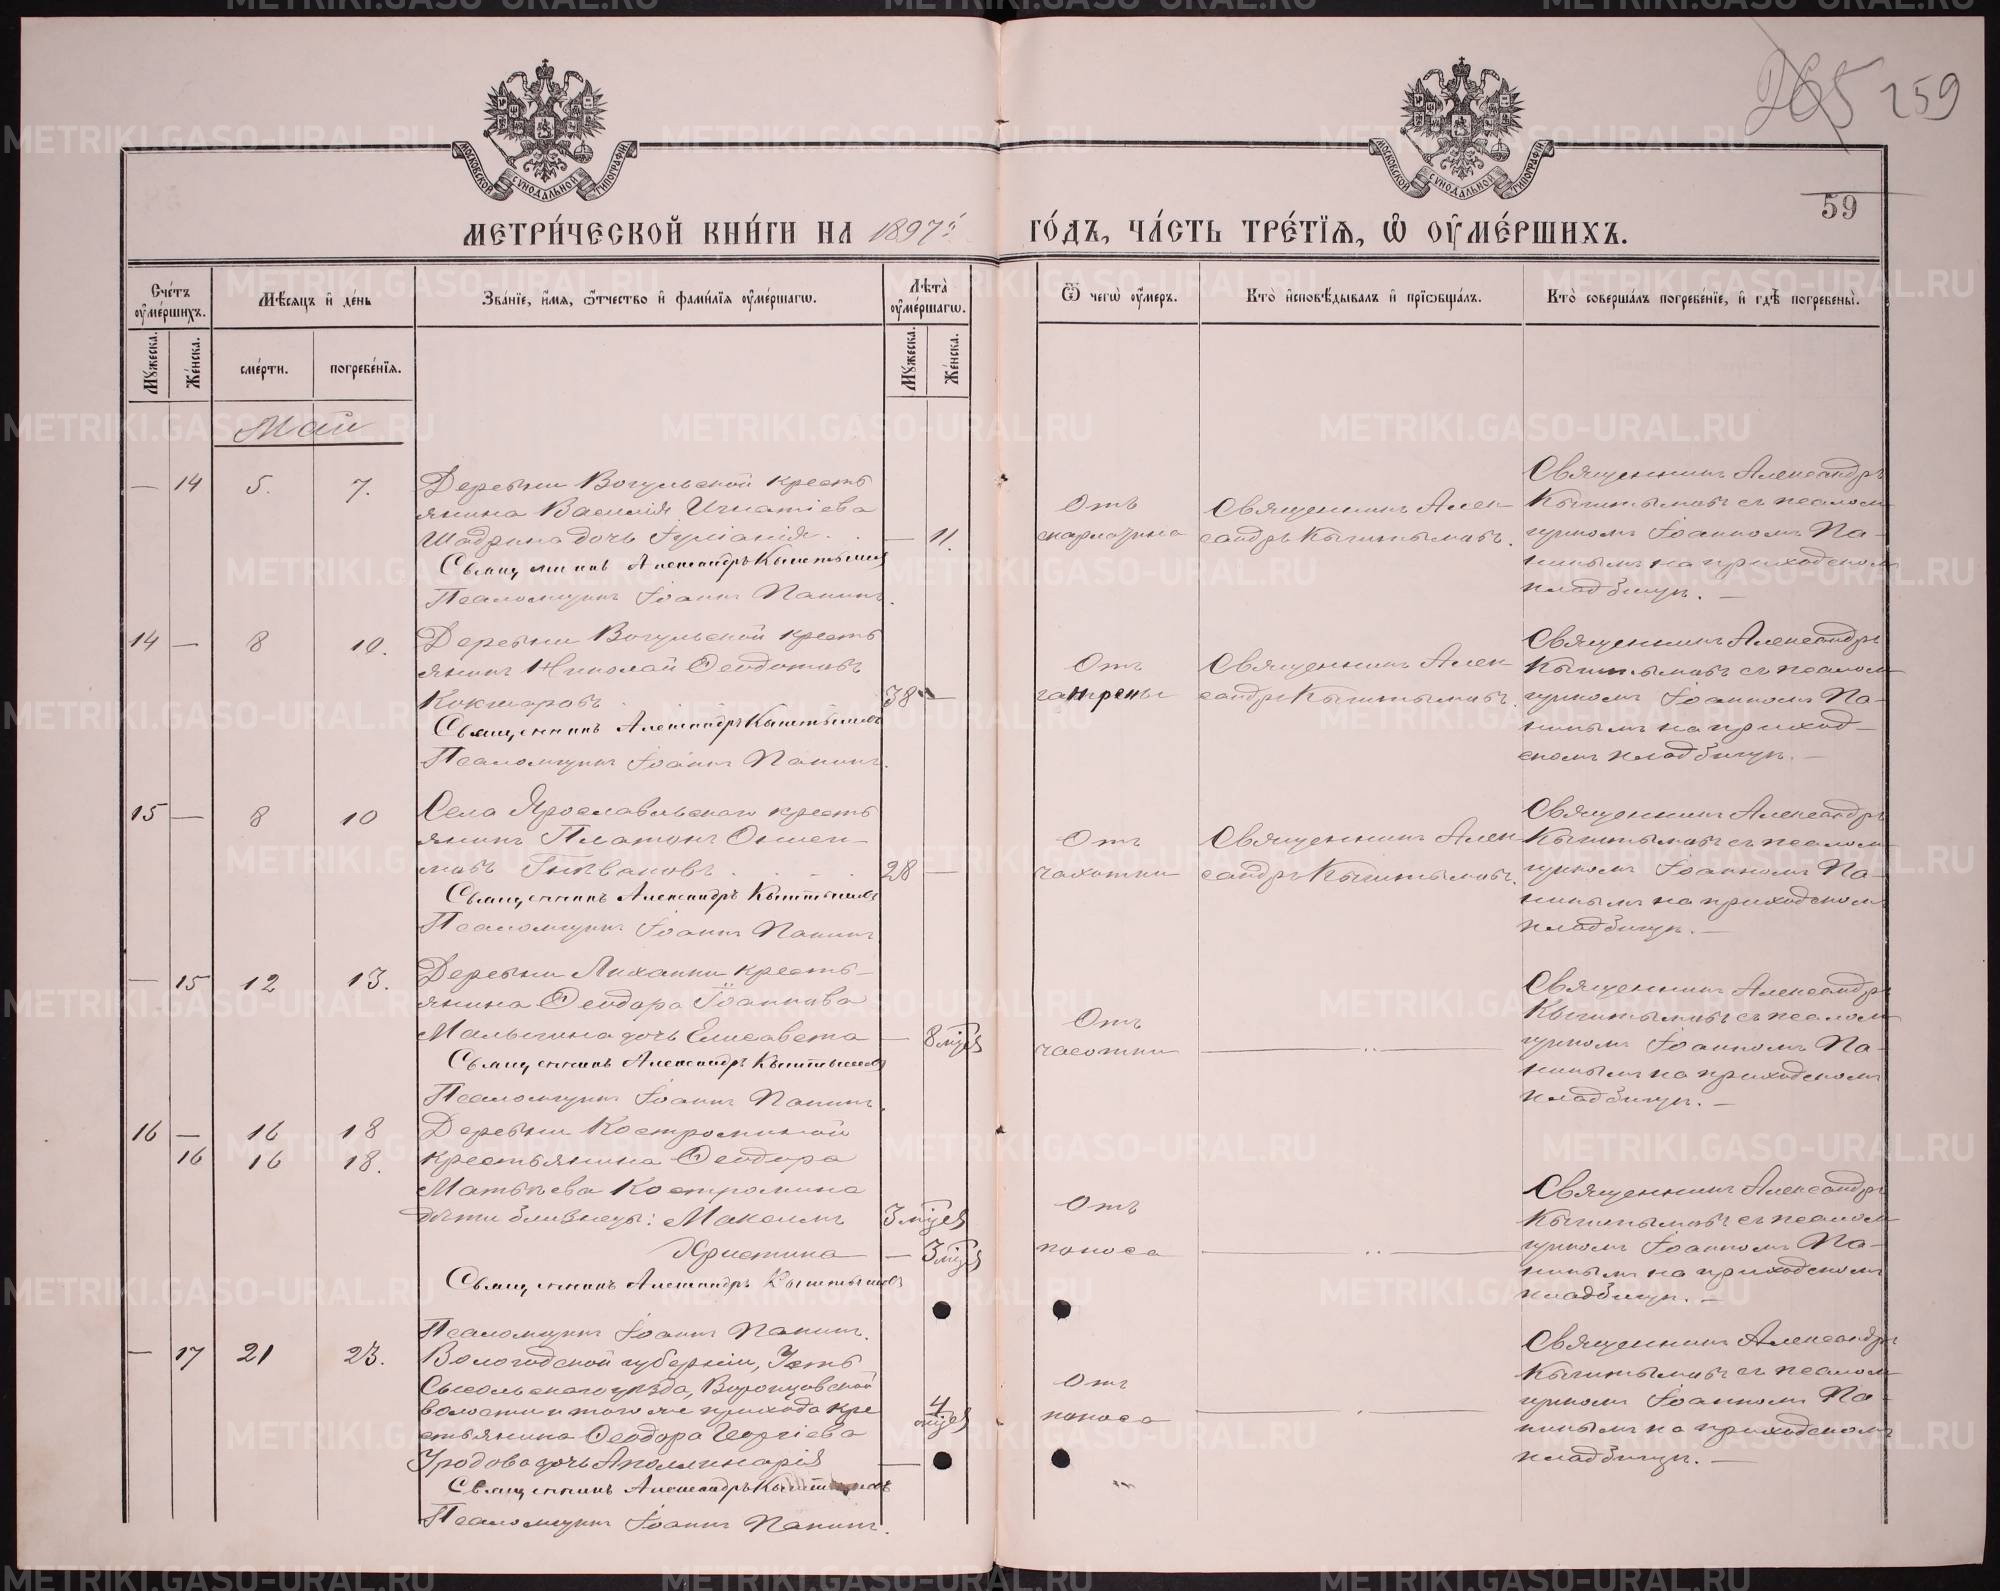 265 259
МОСКОВСКОЙ СѴНОДАЛЬНОЙ ТИПОГРАФІИ
МОСКОВСКОЙ СѴНОДАЛЬНОЙ ТИПОГРАФІИ
59
МЕТРИ́ЧЕСКОЙ КНИ́ГИ НА 1897й ГО́ДЪ, ЧА́СТЬ ТРЕ́ТІѦ, Ѡ ОУ҆МЕ́РШИХЪ.
Сче́тъ оу҆ме́ршихъ.
Мѣ́сяцъ и҆ де́нь
Зва́нїе, и҆́мя, ѻ҆́тчество и҆ фами́лїя оу҆ме́ршагѡ.
Лѣта̀ оу҆ме́ршагѡ.
Ѿ чегѡ̀ оу҆́меръ.
Кто̀ и҆сповѣ́дывалъ и҆ прїѡбща́лъ.
Кто̀ соверша́лъ погребе́нїе, и҆ гдѣ̀ погребены̀.
Мꙋ́жеска.
Же́нска.
сме́рти.
погребе́нїя.
Мꙋ́жеска.
Же́нска.
Май
— 14 5. 7. Деревни Вогульской кресть
янина Василія Игнатіева
Шадрина дочь Іуліанія. — 11.
Священникъ Александръ Кыштымовъ
Псаломщикъ Іоаннъ Панинъ.
Отъ
скарлатина
Священникъ Алек-
сандръ Кыштымовъ.
Священникъ Александръ
Кыштымовъ съ псалом
щикомъ Іоанномъ Па-
нинымъ на приходскомъ
кладбищѣ. —
14 — 8 10. Деревни Вогульской кресть
янинъ Николай Ѳеодотовъ
Кокшаровъ . 38 —
Священникъ Александръ Кыштымовъ
Псаломщикъ Іоаннъ Панинъ.
Отъ
гангрены
Священникъ Алек-
сандръ Кыштымовъ.
Священникъ Александръ
Кыштымовъ съ псалом
щикомъ Іоанномъ Па-
нинымъ на приход-
скомъ кладбищѣ. —
15 — 8 10 Села Ярославльскаго кресть
янинъ Платонъ
28 —
Священникъ Александръ Кыштымовъ
Псаломщикъ Іоаннъ Панинъ
Отъ
чахотки
Священникъ Алек-
сандръ Кыштымовъ.
Священникъ Александръ
Кыштымовъ съ псалом
щикомъ Іоанномъ Па-
нинымъ на приходскомъ
кладбищѣ. —
— 15 12 13. Деревни кресть-
янина Ѳеодора Іоаннова
Малыгина дочь Елисавета — 8 мцев
Священникъ Александръ Кыштымовъ
Псаломщикъ Іоаннъ Панинъ.
Отъ
чахотки
Священникъ Александръ
Кыштымовъ съ псалом
щикомъ Іоанномъ Па-
нинымъ на приходскомъ
кладбищѣ. —
16 — 16 18 Деревни Костроминой
16 16 18. крестьянина Ѳеодора
Матвѣева Костромина
дѣти близнецы: Максимъ 3 мцев
Христина — 3 мцев
Священникъ Александръ Кыштымовъ
Псаломщикъ Іоаннъ Панинъ.
Отъ
поноса
Священникъ Александръ
Кыштымовъ съ псалом
щикомъ Іоанномъ Па-
нинымъ на приходскомъ
кладбищѣ. —
— 17 21 23. Вологодской губерніи, Усть
Сысольскаго уѣзда, Воронцовской
волости и того же прихода кре
стьянина Ѳеодора Георгіева
дочь Аполлинарія — 4 мцев
Священникъ Александръ Кыштымовъ
Псаломщикъ Іоаннъ Панинъ.
Отъ
поноса
Священникъ Александръ
Кыштымовъ съ псалом
щикомъ Іоанномъ Па-
нинымъ на приходскомъ
кладбищѣ. —
METRIKI.GASO-URAL.RU